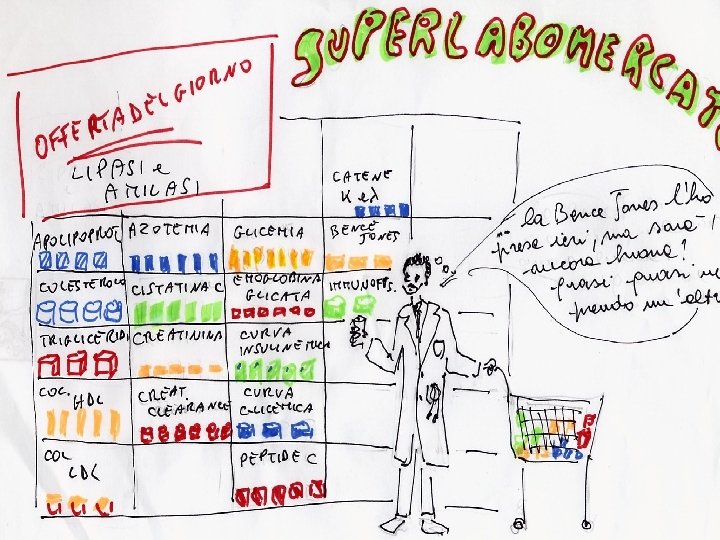 SUPERLABOMERCAT
OFFERTA DEL GIORNO
LIPASI e
AMILASI
CATENE
K e λ
APOLIPOPROT.
AZOTEMIA
GLICEMIA
BENCE
JONES
COLESTEROLO
CISTATINA C
EMOGLOBINA
GLICATA
IMMUNOFIS.
TRIGLICERIDI
CREATININA
CURVA
INSULINEMICA
COL HDL
CREAT.
CLEARANCE
CURVA
GLICEMICA
COL
LDL
PEPTIDE C
- la Bence Jones l'ho
presa ieri, ma sarà
ancora buona?
quasi quasi ne
prendo un'altr